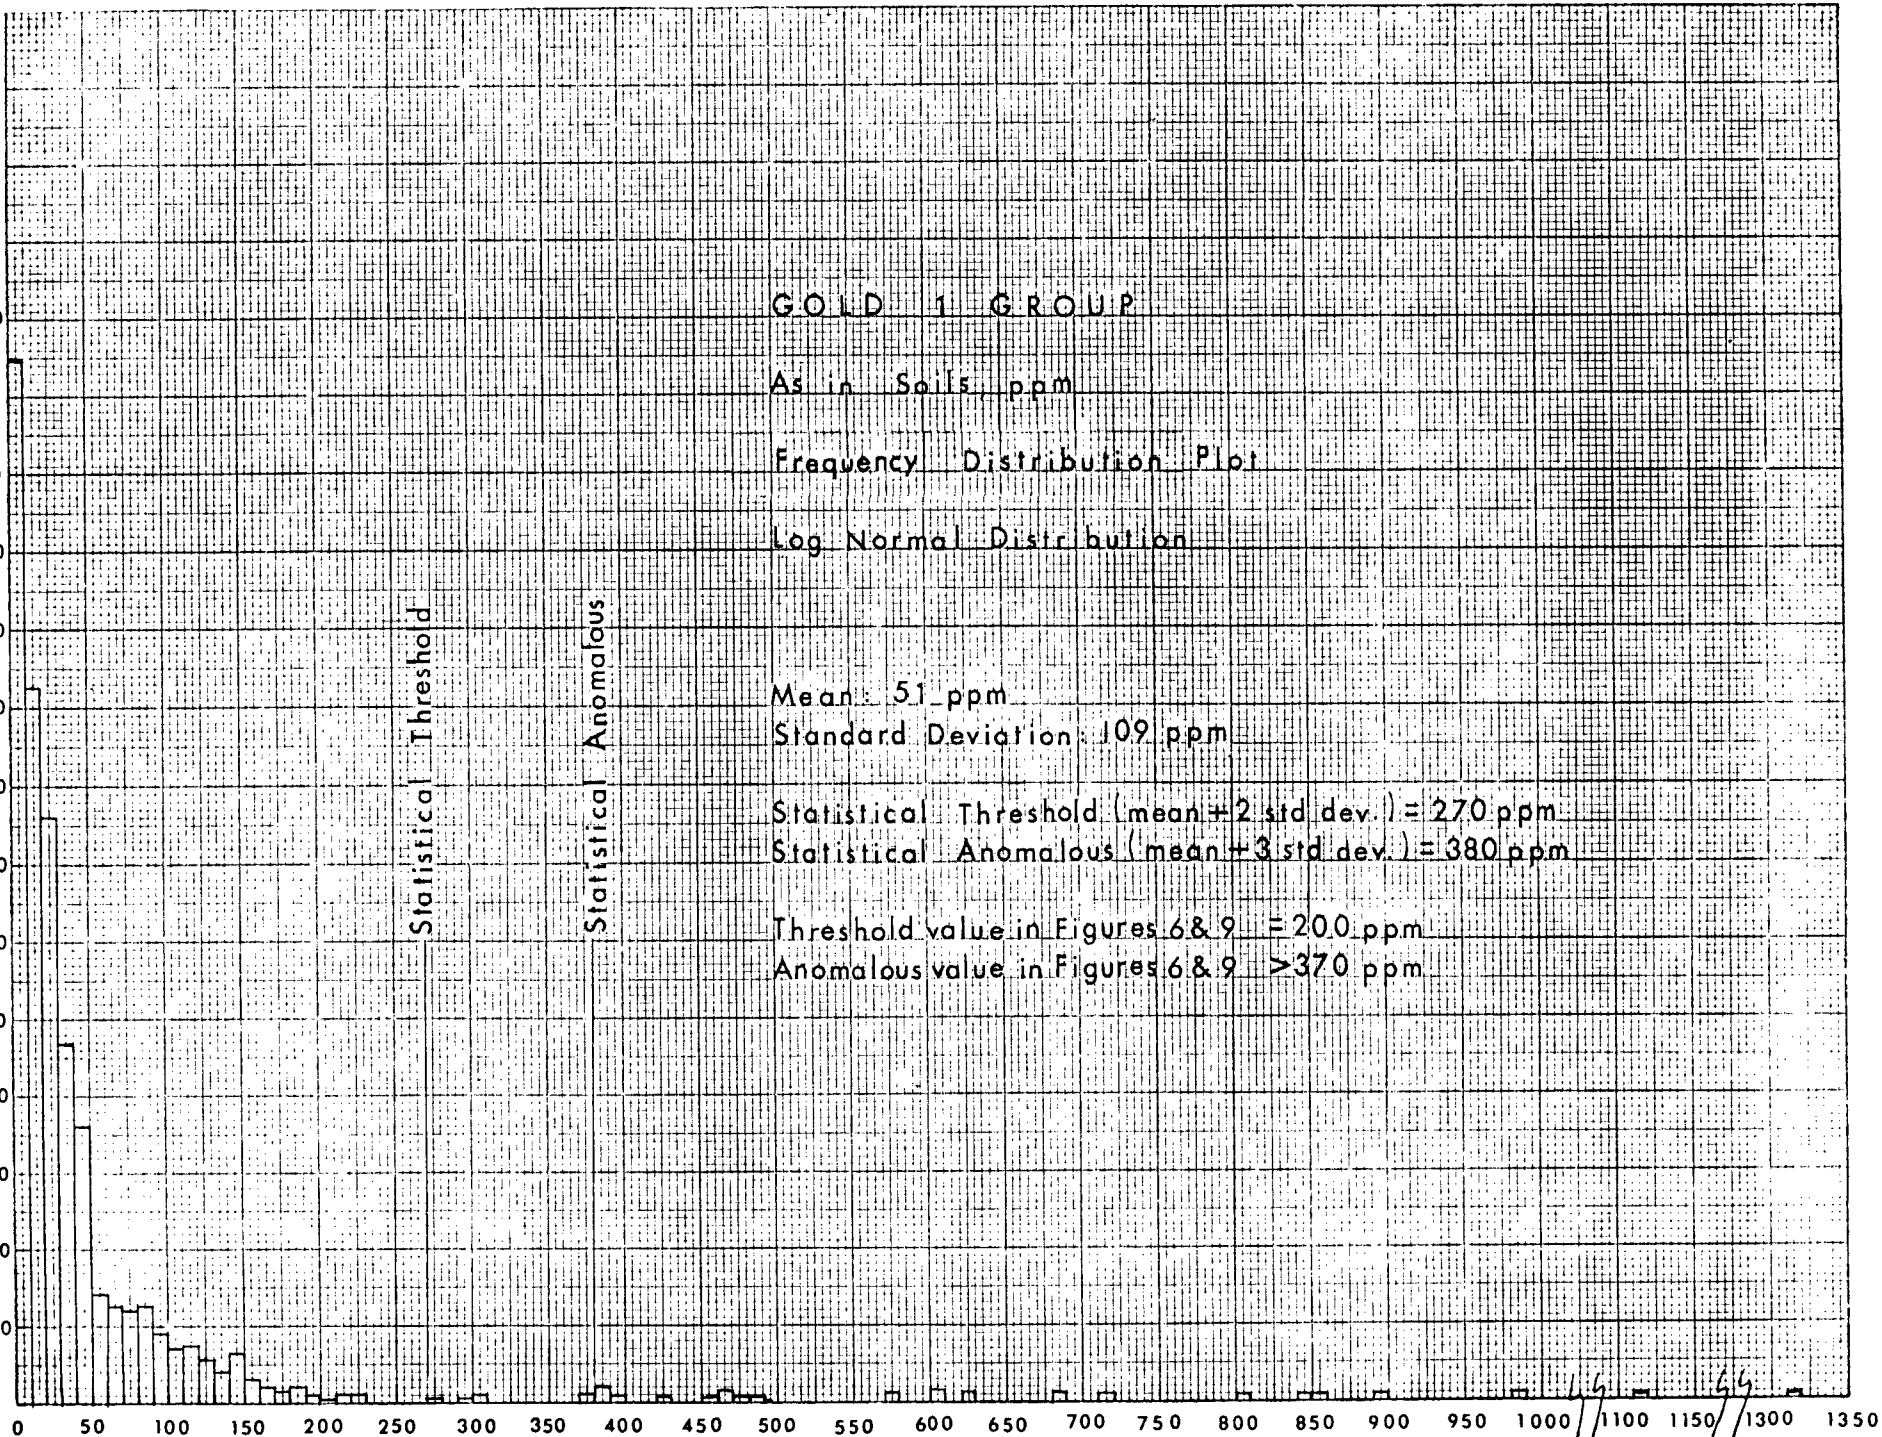 GOLD 1 GROUP
As in Soils, ppm
Frequency Distribution Plot
Log Normal Distribution
Statistical Threshold
Statistical Anomalous
Mean: 51 ppm
Standard Deviation: 109 ppm
Statistical Threshold (mean + 2 std dev.) = 270 ppm
Statistical Anomalous (mean + 3 std dev.) = 380 ppm
Threshold value in Figures 6 & 9 = 200 ppm
Anomalous value in Figures 6 & 9 >370 ppm
0 50 100 150 200 250 300 350 400 450 500 550 600 650 700 750 800 850 900 950 1000 1100 1150 1300 1350